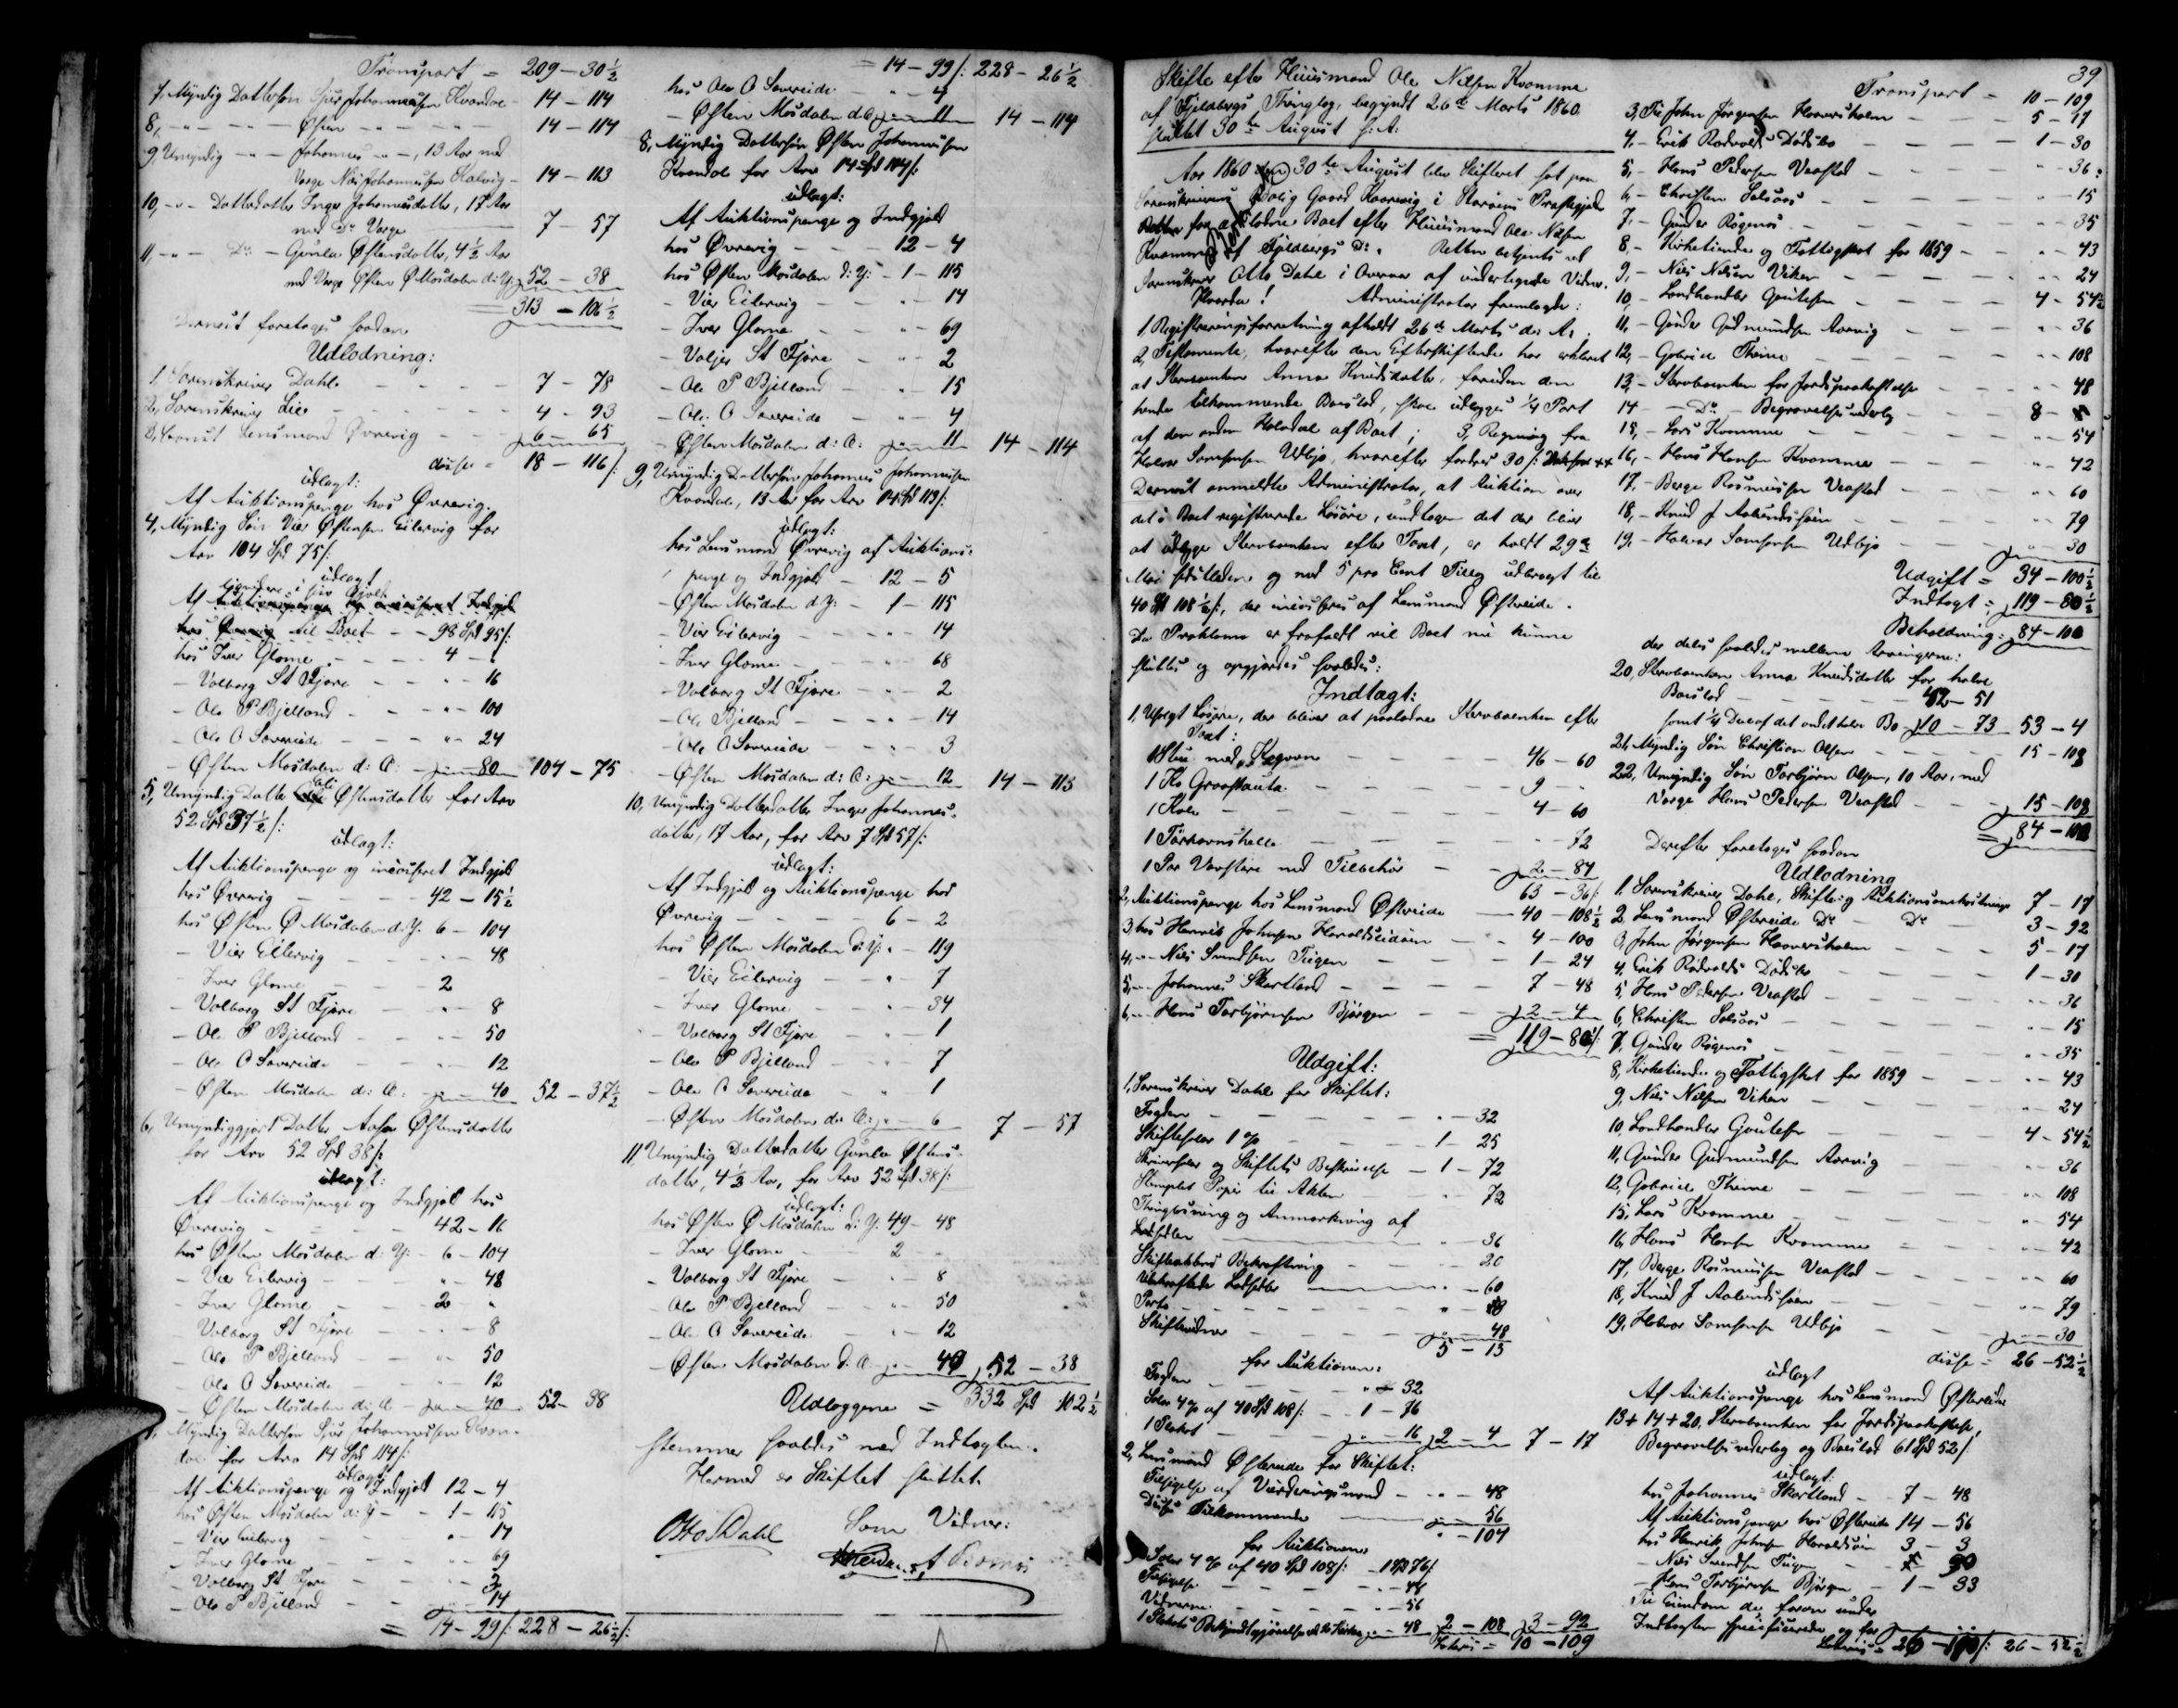 Transport = 209 – 30½
7, Myndig Dattersøn Sjur Johannessen Kvandal – 14 – 114
8, – " – – " – Østen – " – – " – 14 – 114
9, Umyndig – " – Johannes – " –, 13 Aar med
Værge Nils Johannessen Kalvig – 14 – 113
10, – " – Datterdatter Inger Johannesdatter, 17 Aar
med Do Værge 7 – 57
11, – " – Do – Gunla Østensdatter, 4½ Aar
med Værge Østen Ø Mosdalen d: y: 52 – 38
= 313 – 106½
Dernæst foretoges saadan
Udlodning:
1, Sorenskriver Dahl – – – 7 – 78
2, Sorenskriver Lie – – – 4 – 93
3, Lensmand Øvrevig – – 6 – 65
disse = 18 – 116/:
udlagt:
Af Auktionspenge hos Øvrevig.
4, Myndig Søn Vier Østensen Eilervig for
Arv 104 Spd 75/:
udlagt
til Boet – – 98 Spd 95/:
hos Iver Glome – – 4 – "
– Valborg St Fjære – – " – 16
– Ole P Bjelland – – " – 100
– Ole O Sævereide – – " – 24
– Østen Mosdalen d: æ: – 80 104 – 75
5, Umyndig Datter Østensdatter for Arv
52 Spd 37½/:
udlagt:
Af Auktionspenge og incasseret Indgjæld
hos Øvrevig – 42 – 15½
hos Østen Ø Mosdalen d: y: 6 – 104
– Vier Eilervig – 48
Iver Glome 2
– Valborg St Fjære – " – 8
– Ole P Bjelland – " – 50
– Ole O Sævereide – " – 12
– Østen Mosdalen d: æ: – 40 52 – 37½
6, Umyndiggjort Datter Aasa Østensdatter
for Arv 52 Spd 38/:
udlagt:
Af Auktionspenge og Indgjæld hos
Øvrevig – – 42 – 16
hos Østen Mosdalen d: y: – 6 – 104
– Vier Eilervig – " – 48
– Iver Glome – 2 – "
– Valborg St Fjære – " – 8
– Ole P Bjelland – " – 50
– Ole O Sævereide – " – 12
– Østen Mosdalen d: æ – 40 52 – 38
7, Myndig Dattersøn Sjur Johannessen Kvan-
dal for Arv 14 Spd 114/:
udlagt:
Af Auktionspenge og Indgjæld 12 – 4
hos Østen Mosdalen d: y – 1 – 115
– Vier Eilervig – " – 14
– Iver Glome – " – 69
– Valborg St Fjære – 2
– Ole P Bjelland – 14
= 14 – 99/: 228 – 26½/:
= 14 – 99/: 228 – 26½
hos Ole O Sævereide " – 4
– Østen Mosdalen d: æ: – 11 14 – 114
8, Myndig Dattersøn Østen Johannessen
Kvandal for Arv 14 Spd 114/:
udlagt:
Af Auktionspenge og Indgjæld
hos Øvrevig – 12 – 4
hos Østen Mosdalen d: y: – 1 – 115
– Vier Eilervig – " – 14
– Iver Glome – " – 69
– Valger St Fjære – " – 2
– Ole P Bjelland – " 15
– Ole O Sævereide – " – 4
– Østen Mosdalen d: æ: – 11 14 – 114
9, Umyndig Dattersøn Johannes Johannessen
Kvandal, 13 Aar for Arv 14 Spd 113/:
udlagt:
hos Lensmand Øvrevig af Auktions-
penge og Indgjæld – 12 – 5
– Østen Mosdalen d: y: – 1 – 115
– Vier Eilervig – – " – 14
– Iver Glome – – " – 68
– Valborg St Fjære – " – 2
– Ole Bjelland – – " – 14
– Ole O Sævereide – – " – 3
– Østen Mosdalen d: æ: – 12 14 – 113
10, Umyndig Datterdatter Inger Johannes-
datter, 17 Aar, for Arv 7 Spd 57/:
udlagt:
Af Indgjæld og Auktionspenge hos
Øvrevig – – – 6 – 2
hos Østen Mosdalen d: y: " – 119
– Vier Eilervig – " – 7
– Iver Glome – " – 34
– Valborg St Fjære – " – 1
– Ole P Bjelland – " – 7
– Ole O Sævereide – " 1
– Østen Mosdalen d: æ: – 6 7 – 57
11, Umyndig Datterdatter Gunla Østens-
datter, 4½ Aar, for Arv 52 Spd 38/:
udlagt:
hos Østen Ø Mosdalen d: y: 49 – 48
– Iver Glome – 2
– Valborg St Fjære – 8
– Ole P Bjelland – " – 50
– Ole O Sævereide – " – 12
– Østen Mosdalen d: æ: – 40 52 – 38
Udlæggene = 332 Spd 102½
stemmer saaledes med Indtægten.
Hermed er Skiftet sluttet.
Otto Dahl Som Vidner:
39
Skifte efter Huusmand Ole Nilsen Kvamme
af Fjeldbergs Thinglag, begyndt 26de Marts 1860.
sluttet 30te August s: A:
Aar 1860 den 30te August blev Skifteret sat paa
Sorenskriverens Bolig Gaard i Størens Præstegjeld
Boet efter Huusmand Ole Nilsen
Kvamme af Fjeldbergs Do. Retten betjentes ved
Sorenskriver Otto Dahl i Overvær af undertegnede Vidner.
Hvorda! Administrator fremlagde:
1, Registreringsforretning afholdt 26de Marts d: A:
2, Testamente, hvorefter den Efterskiftende har erklæret
at Stervboenken Anna Knudsdatter, foruden den
hende tilkommende Boeslod, skal udlægges ¼ Part
af den anden Halvdel af Boet; 3, Regning fra
Halvor Samsonsen Udbjo, hvorefter fordres 30/:
Dernæst anmeldte Administrator, at Auktion over
det i Boet registrerede Løsøre, undtagen det der bliver
at udlægge Stervboenken efter Taxt, er holdt 29de
Mai sidstleden og med 5 pro Cent Tillæg udbragt til
40 Spd 108½/:, der incasseres af Lensmand Østereide.
Da Proklama er frafaldt vil Boet nu kunne
sluttes og opgjordes saaledes:
Indtægt:
1, Usolgt Løsøre, der bliver at paalodne Stervboenken efter
Taxt:
1 Stue med Kogeovn – – 46 – 60
1 Ko Graastauta – – 9 – "
1 Kale – – 4 – 60
1 Tørkornshelle – – 72
1 Par Vævstole med Tilbehør – 2 – 84
63 – 36/:
2, Auktionspenge hos Lensmand Østereide – 40 – 108½
3 hos Henrik Johnsen Haraldseidøien – 4 – 100
4, – " – Nils Svendsen Tugen – – 1 – 24
5, – " – Johannes Skartland – – 7 – 48
6, – " – Hans Torbjørnsen Bjørgen – 2 – 4
= 119 – 80½/:
Udgift:
1, Sorenskriver Dahl for Skiftet:
Fogden – – – " – 32
Skiftesalær 1 % – – 1 – 25
Skriversalær og Skiftets Beskrivelse – 1 – 72
Stemplet Papir til Akten – " – 72
Thinglæsning og Anmærkning af
Lodsedlen – " – 36
Skifteaktens Bekræftning – " – 20
Udskrevne Lodsedler – " – 60
Porto – –
Skiftevidner – 48
5 – 13
for Auktionen:
Fogden – – " – 32
Salær 4 % af 40 Spd 108/: – 1 – 76
1 Plakat – – 16 2 – 4 7 – 17
2, Lensmand Østereide for Skiftet:
Tilsigelse af Vurderingsmænd – " – 48
Disses Tilkommende – 56
" – 104
for Auktionen
Salær 4 % af 40 Spd 108/: – 1 Spd 76/:
Tilsigelse – – " – 44
Vidnerne – " – 56
1 Plakats Bekjendtgjørelse – 48 2 – 108 3 – 92
Lateris = 10 – 109
Transport = 10 – 109
3, Til John Jørgensen Haaversholm – – 5 – 17
4, – Erik Rødvolds Dødsbo – – – 1 – 30
5, – Hans Pedersen Veastad – – – " – 36:
6, – Christen Solsaas – – " – 15
7, – Gunder Røgenes – – " – 35
8, – Kirketiende og Fattigskat for 1859 – " – 43
9, – Nils Nilsen Viken – – " – 24
10, – Landhandler Gautesen – – 4 – 54½
11, – Gunder Gudmundsen Aarvig – " – 36
12, – Gabriel Thime – – " – 108
13, – Stervboenken for Jordspaakastelse – " – 48
14 – – Do – Begravelsesudlæg – 8 –
15, – Lars Kvamme – – " – 54
16, – Hans Hansen Kvamme – – " – 42
17, – Børge Rasmussen Veastad – – " – 60
18, – Knud J Aalundsøen – – " – 79
19, – Halvor Samsonsen Udbjo – – 30
Udgift = 34 – 100½
Indtægt = 119 – 80½
Beholdning = 84 – 100
der deles saaledes mellem Arvingerne:
20, Stervboenken Anna Knudsdatter for halve
Boeslod – – 42 – 51
samt ¼ Deel af det andet halve Bo 10 – 73 53 – 4
21, Myndig Søn Christian Olsen – – 15 – 108
22, Umyndig Søn Torbjørn Olsen, 10 Aar, med
Værge Hans Pedersen Veastad – – 15 – 108
= 84 – 100
Derefter foretoges saadan
Udlodning
1, Sorenskriver Dahl, Skifte og Auktionsomkostninger 7 – 17
2, Lensmand Østereide Do – Do – 3 – 92
3, John Jørgensen Haaversholm – – 5 – 17
4, Erik Rødvolds Dødsbo – – 1 – 30
5, Hans Pedersen Veastad – – " – 36
6, Christen Solsaas – – " – 15
7, Gunder Røgenes – – " – 35
8, Kirketiende og Fattigskat for 1859 – – " – 43
9, Nils Nilsen Viken – – " – 24
10, Landhandler Gautesen – – 4 – 54½
11, Gunder Gudmundsen Aarvig – " – 36
12, Gabriel Thime – – " – 108
15, Lars Kvamme – – " – 54
16, Hans Hansen Kvamme – – " – 42
17, Børge Rasmussen Veastad – – " – 60
18, Knud J Aalundsøen – – " – 79
19, Halvor Samsonsen Udbjo – – 30
disse = 26 – 52½
udlagt
Af Auktionspenge hos Lensmand Østereide
13 + 14 + 20, Stervboenken for Jordspaakastelse,
Begravelsesudlæg og Boeslod 61 Spd 52/:
udlagt:
hos Johannes Skartland – 7 – 48
Af Auktionspenge hos Østereide 14 – 56
hos Henrik Johnsen Haraldseidøien 3 – 3
– Nils Svendsen Tugen – 90
– Hans Torbjørnsen Bjørgen – 1 – 33
Til Eiendom de foran under
Indtægten specificerede og for
Lateris = 26 – 52½